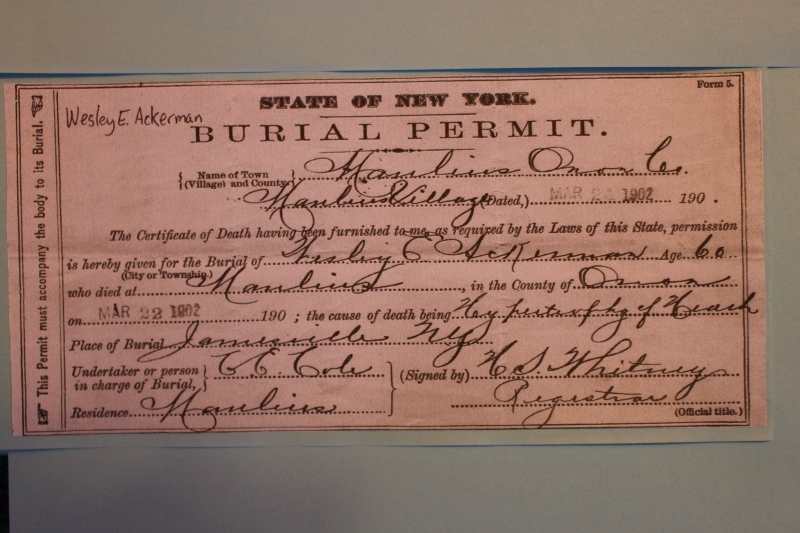 Form 5.
STATE OF NEW YORK.
Wesley E. Ackerman
BURIAL PERMIT.
Name of Town (Village) and County Manlius Onon Co.
Manlius Village (Dated,) MAR 24 1902 190 .
The Certificate of Death having been furnished to me, as required by the Laws of this State, permission
is hereby given for the Burial of Wesley E Ackerman Age 60
(City or Township.)
who died at Manlius, in the County of Onon
on MAR 22 1902 190 ; the cause of death being of Heart
Place of Burial Jamesville NY
Undertaker or person in charge of Burial, C E Cole (Signed by) H. S. Whitney
Registrar
Residence Manlius (Official title.)
This Permit must accompany the body to its Burial.